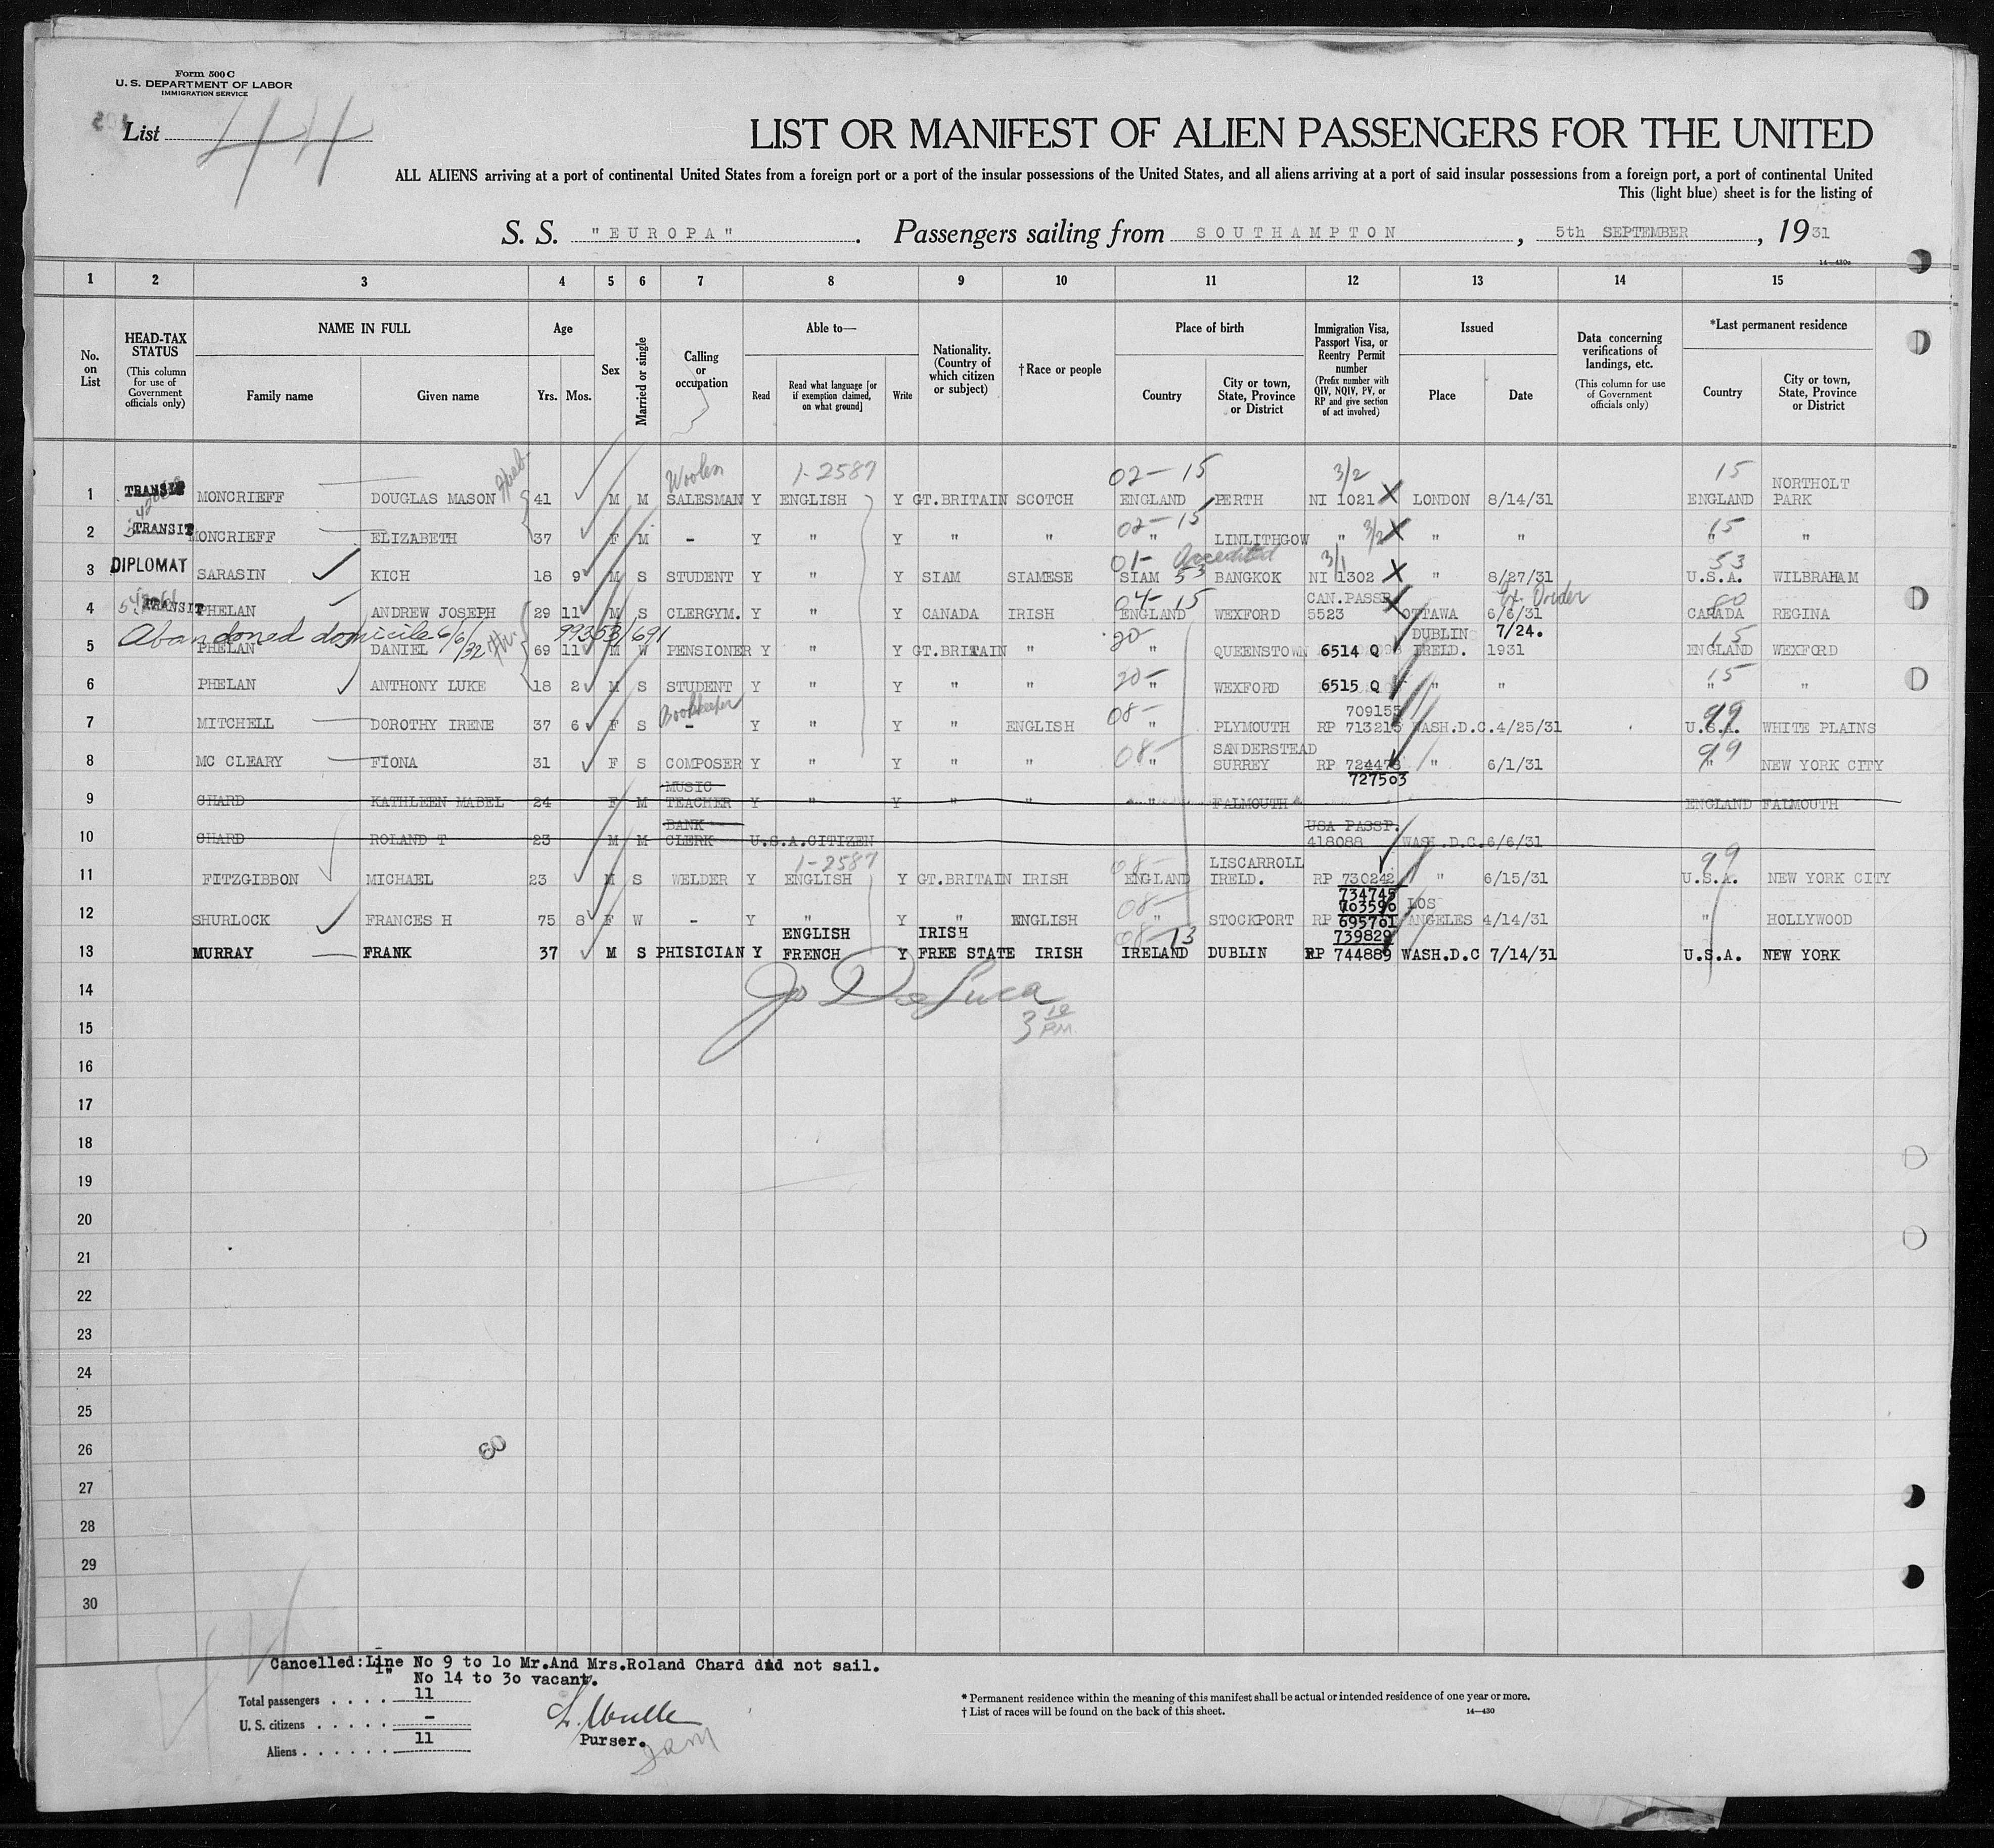 Form 500 C
U. S. DEPARTMENT OF LABOR
IMMIGRATION SERVICE
List 44
LIST OR MANIFEST OF ALIEN PASSENGERS FOR THE UNITED
ALL ALIENS arriving at a port of continental United States from a foreign port or a port of the insular possessions of the United States, and all aliens arriving at a port of said insular possessions from a foreign port, a port of continental United
This (light blue) sheet is for the listing of
S. S. "EUROPA". Passengers sailing from SOUTHAMPTON, 5th SEPTEMBER, 19 31
14—430c
1 2 3 4 5 6 7 8 9 10 11 12 13 14 15
No. on List
HEAD-TAX STATUS (This column for use of Government officials only)
NAME IN FULL
Family name Given name
Age
Yrs. Mos.
Sex
Married or single
Calling or occupation
Able to—
Read Read what language [or if exemption claimed, on what ground] Write
Nationality. (Country of which citizen or subject)
†Race or people
Place of birth
Country City or town, State, Province or District
Immigration Visa, Passport Visa, or Reentry Permit number (Prefix number with QIV, NQIV, PV, or RP and give section of act involved)
Issued
Place Date
Data concerning verifications of landings, etc. (This column for use of Government officials only)
*Last permanent residence
Country City or town, State, Province or District
Woolen 1-2587 02-15 3/2 15 NORTHOLT
1 TRANSIT MONCRIEFF DOUGLAS MASON 41 M M SALESMAN Y ENGLISH Y GT.BRITAIN SCOTCH ENGLAND PERTH NI 1021 X LONDON 8/14/31 ENGLAND PARK
02-15 3/2 15
2 TRANSIT MONCRIEFF ELIZABETH 37 F M - Y " Y " " " LINLITHGOW " X " " " "
01- Accredited 3/1 53
3 DIPLOMAT SARASIN KICH 18 9 M S STUDENT Y " Y SIAM SIAMESE SIAM 53 BANGKOK NI 1302 X " 8/27/31 U.S.A. WILBRAHAM
04-15 CAN.PASSP. Ex. Order 80
4 TRANSIT PHELAN ANDREW JOSEPH 29 11 M S CLERGYM. Y " Y CANADA IRISH ENGLAND WEXFORD 5523 X OTTAWA 6/6/31 CANADA REGINA
Abandoned domicile 6/6/32 99353/691 20- DUBLIN 7/24. 15
5 PHELAN DANIEL 69 11 M W PENSIONER Y " Y GT.BRITAIN " " QUEENSTOWN 6514 Q IRELD. 1931 ENGLAND WEXFORD
20- 15
6 PHELAN ANTHONY LUKE 18 2 M S STUDENT Y " Y " " " WEXFORD 6515 Q " " " "
Bookkeeper 08- 709155 99
7 MITCHELL DOROTHY IRENE 37 6 F S - Y " Y " ENGLISH " PLYMOUTH RP 713216 WASH.D.C. 4/25/31 U.S.A. WHITE PLAINS
08- SANDERSTEAD 99
8 MC CLEARY FIONA 31 F S COMPOSER Y " Y " " " SURREY RP 724478 " 6/1/31 " NEW YORK CITY
727503
MUSIC
9 CHARD KATHLEEN MABEL 24 F M TEACHER Y " Y " " " FALMOUTH ENGLAND FALMOUTH
BANK USA PASSP.
10 CHARD ROLAND T 23 M M CLERK U.S.A.CITIZEN 418088 WASH.D.C. 6/6/31
1-2587 08- LISCARROLL 99
11 FITZGIBBON MICHAEL 23 M S WELDER Y ENGLISH Y GT.BRITAIN IRISH ENGLAND IRELD. RP 730242 " 6/15/31 U.S.A. NEW YORK CITY
734745
08- 703590 LOS
12 SHURLOCK FRANCES H 75 8 F W - Y " Y " ENGLISH " STOCKPORT RP 695701 ANGELES 4/14/31 " HOLLYWOOD
ENGLISH IRISH 08-13 739829
13 MURRAY FRANK 37 M S PHISICIAN Y FRENCH Y FREE STATE IRISH IRELAND DUBLIN RP 744889 WASH.D.C 7/14/31 U.S.A. NEW YORK
14 Jo DeLuca
15 3 10 P.M.
16
17
18
19
20
21
22
23
24
25
26
60
27
28
29
30
Cancelled: Line No 9 to 10 Mr.And Mrs.Roland Chard did not sail.
" No 14 to 30 vacant.
Total passengers . . . . 11
U. S. citizens . . . . . -
Aliens . . . . . . 11
Purser.
* Permanent residence within the meaning of this manifest shall be actual or intended residence of one year or more.
† List of races will be found on the back of this sheet. 14—430